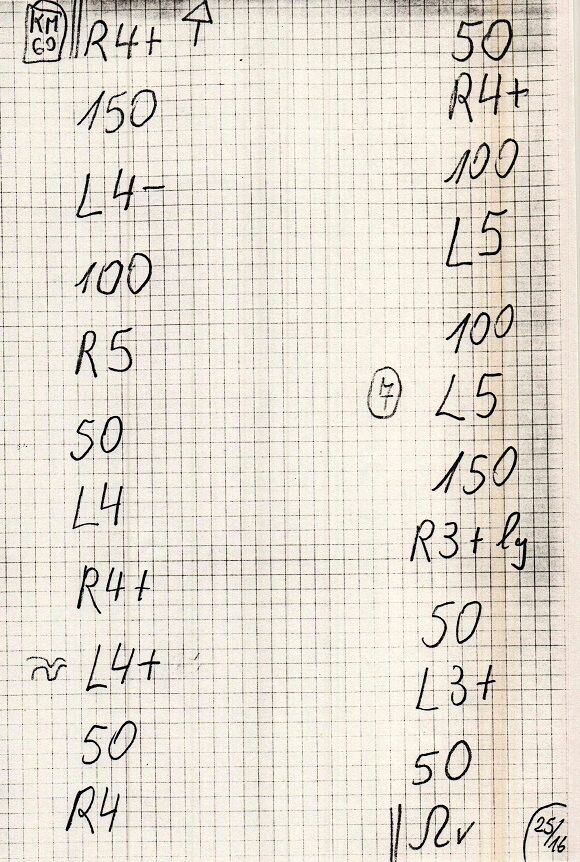 KM
69
R4+
150
L4-
100
R5
50
L4
R4+
L4+
50
R4
50
R4+
100
L5
100
7
L5
150
R3+ly
50
L3+
50
Ωv
25/16